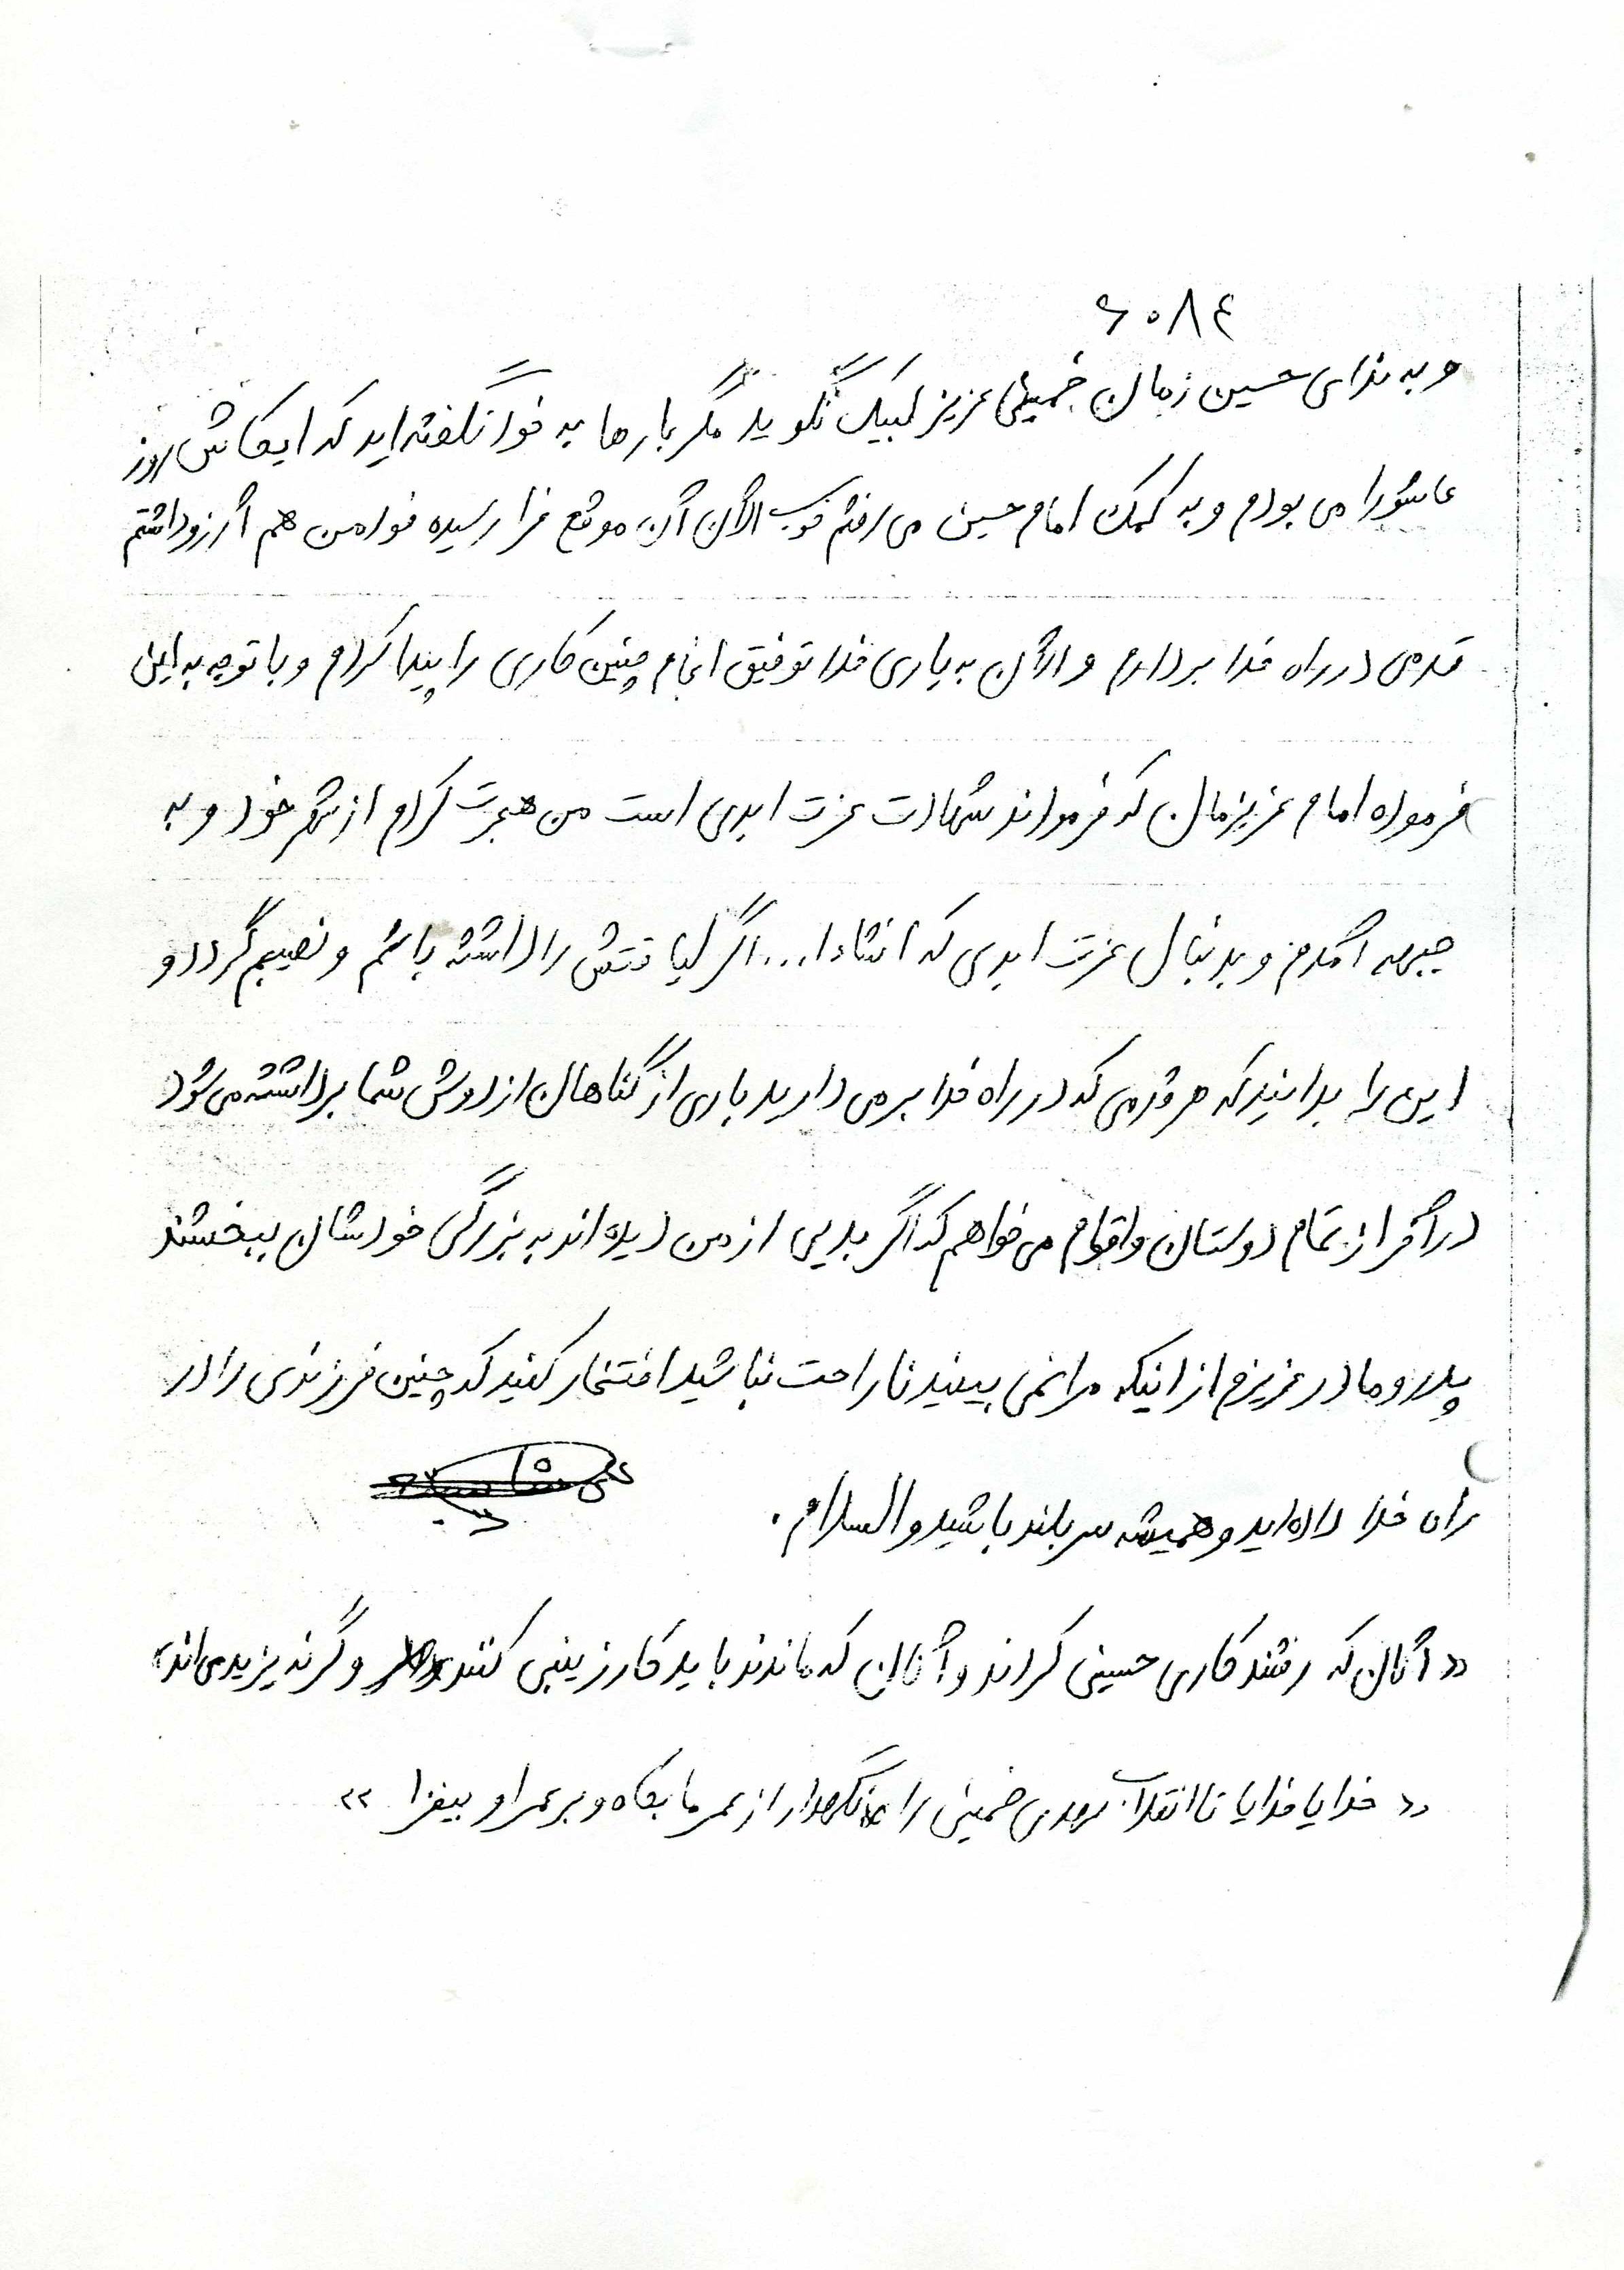 ۶۰۸۴
و به ندای حسین زمان خمینی عزیز لبیک نگوید مگر بارها به خود نگفته‌اید که ایکاش روز
عاشورا می بودم و به کمک امام حسین می رفتم خوب الآن آن موقع فرا رسیده خود من هم آرزو داشتم
قدمی در راه خدا بردارم و الآن به یاری خدا توفیق انجام چنین کاری را پیدا کردم و با توجه به این
فرموده امام عزیزمان که فرمودند شهادت عزت ابدی است من هجرت کردم از شهر خود و به
جبهه آمدم و بدنبال عزت ابدی که انشاءا... اگر لیاقتش را داشته باشم و نصیبم گردد و
این را بدانید که هر قدمی که در راه خدا برمی دارید باری از گناهان از دوش شما برداشته می شود
در آخر از تمام دوستان و اقوام می خواهم که اگر بدیی از من دیده اند به بزرگی خودشان ببخشند
پدر و مادر عزیزم از اینکه مرا نمی بینید ناراحت نباشید افتخار کنید که چنین فرزندی را در
راه خدا داده‌اید و همیشه سربلند باشید والسلام.
«آنان که رفتند کاری حسینی کردند و آنان که ماندند باید کار زینبی کنند وگرنه یزیدی‌اند»
«خدایا خدایا تا انقلاب مهدی خمینی را نگهدار از عمر ما بکاه و بر عمر او بیفزا»